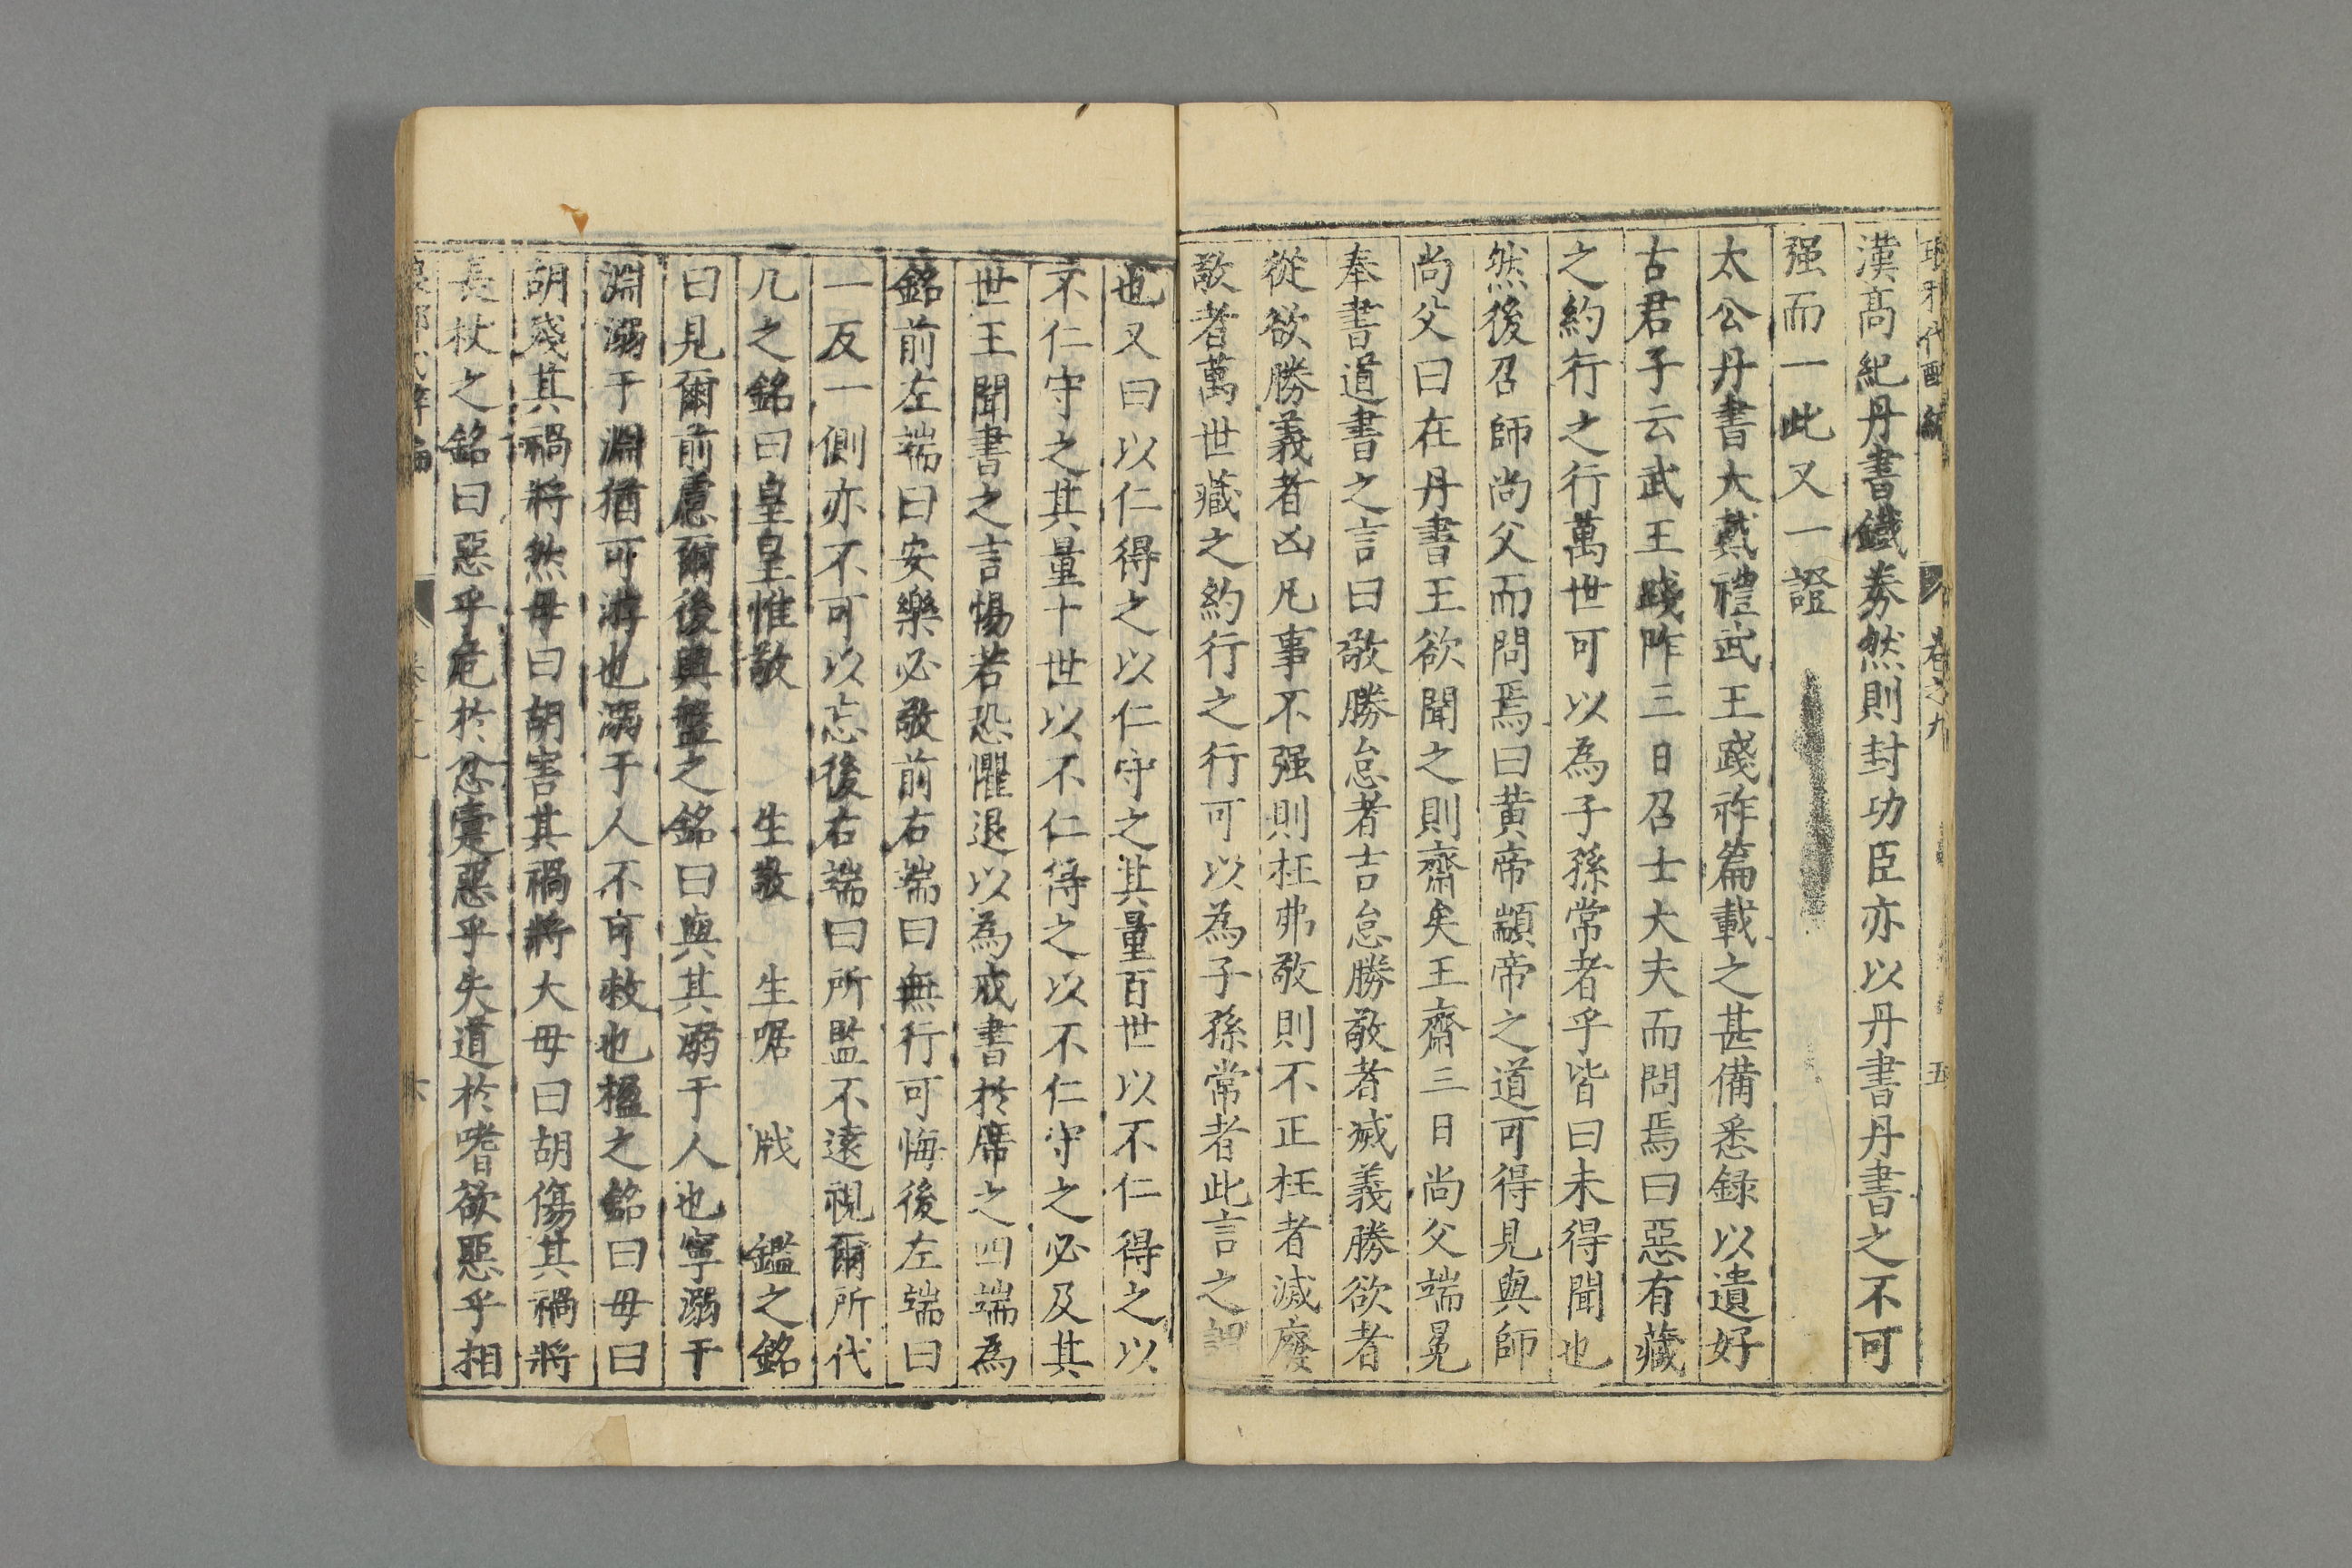 漢髙紀丹書鐵劵然則封功臣亦以丹書丹書之不可
强而一此又一證
太公丹書大戴禮武王踐祚篇載之甚備悉録以遺好
古君子云武王踐阼三日召士大夫而問焉曰惡有藏
之約行之行萬世可以為子孫常者乎皆曰未得聞也
然後召師尚父而問焉曰黄帝顓帝之道可得見與師
尚父曰在丹書王欲聞之則齋矣王齋三日尚父端冕
奉書道書之言曰敬勝怠者吉怠勝敬者滅義勝欲者
從欲勝義者凶凡事不强則枉弗敬則不正枉者滅廢
敬者萬世藏之約行之行可以為子孫常者此言之謂
也又曰以仁得之以仁守之其量百世以不仁得之以
不仁守之其量十世以不仁得之以不仁守之必及其
世王聞書之言惕若恐懼退以為戒書於席之四端為
銘前左端曰安樂必敬前右端曰無行可悔後左端曰
一反一側亦不可以忘後右端曰所監不遠視爾所代
几之銘曰皇皇惟敬 生敬 生㖃 戕 鑑之銘
曰見爾前慮爾後興盤之銘曰與其溺于人也寧溺于
淵溺于淵猶可游也溺于人不可救也楹之銘曰毋曰
胡殘其禍將然毋曰胡害其禍將大毋曰胡傷其禍將
長杖之銘曰惡乎危於忿疐惡乎失道於嗜欲惡乎相
卷之九
五
六